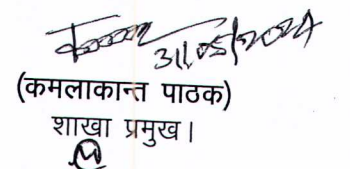 31/05/2024
(कमलाकान्त पाठक)
शाखा प्रमुख।